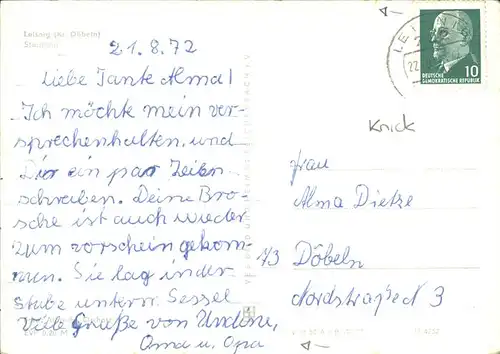 Leisnig (Kr. Döbeln)
21.8.72
Liebe Tante Alma!
Ich möchte mein ver-
sprechen halten und
Dir ein par Zeilen
schreiben. Deine Bro-
sche ist auch wieder
zum vorschein gekom-
men. Sie lag in der
Stube unterm Sessel
Viele Grüße von Undine,
Oma u. Opa
22.
10
DEUTSCHE
DEMOKRATISCHE REPUBLIK
Knick
Frau
Alma Dietze
73 Döbeln
Nordstraße 3